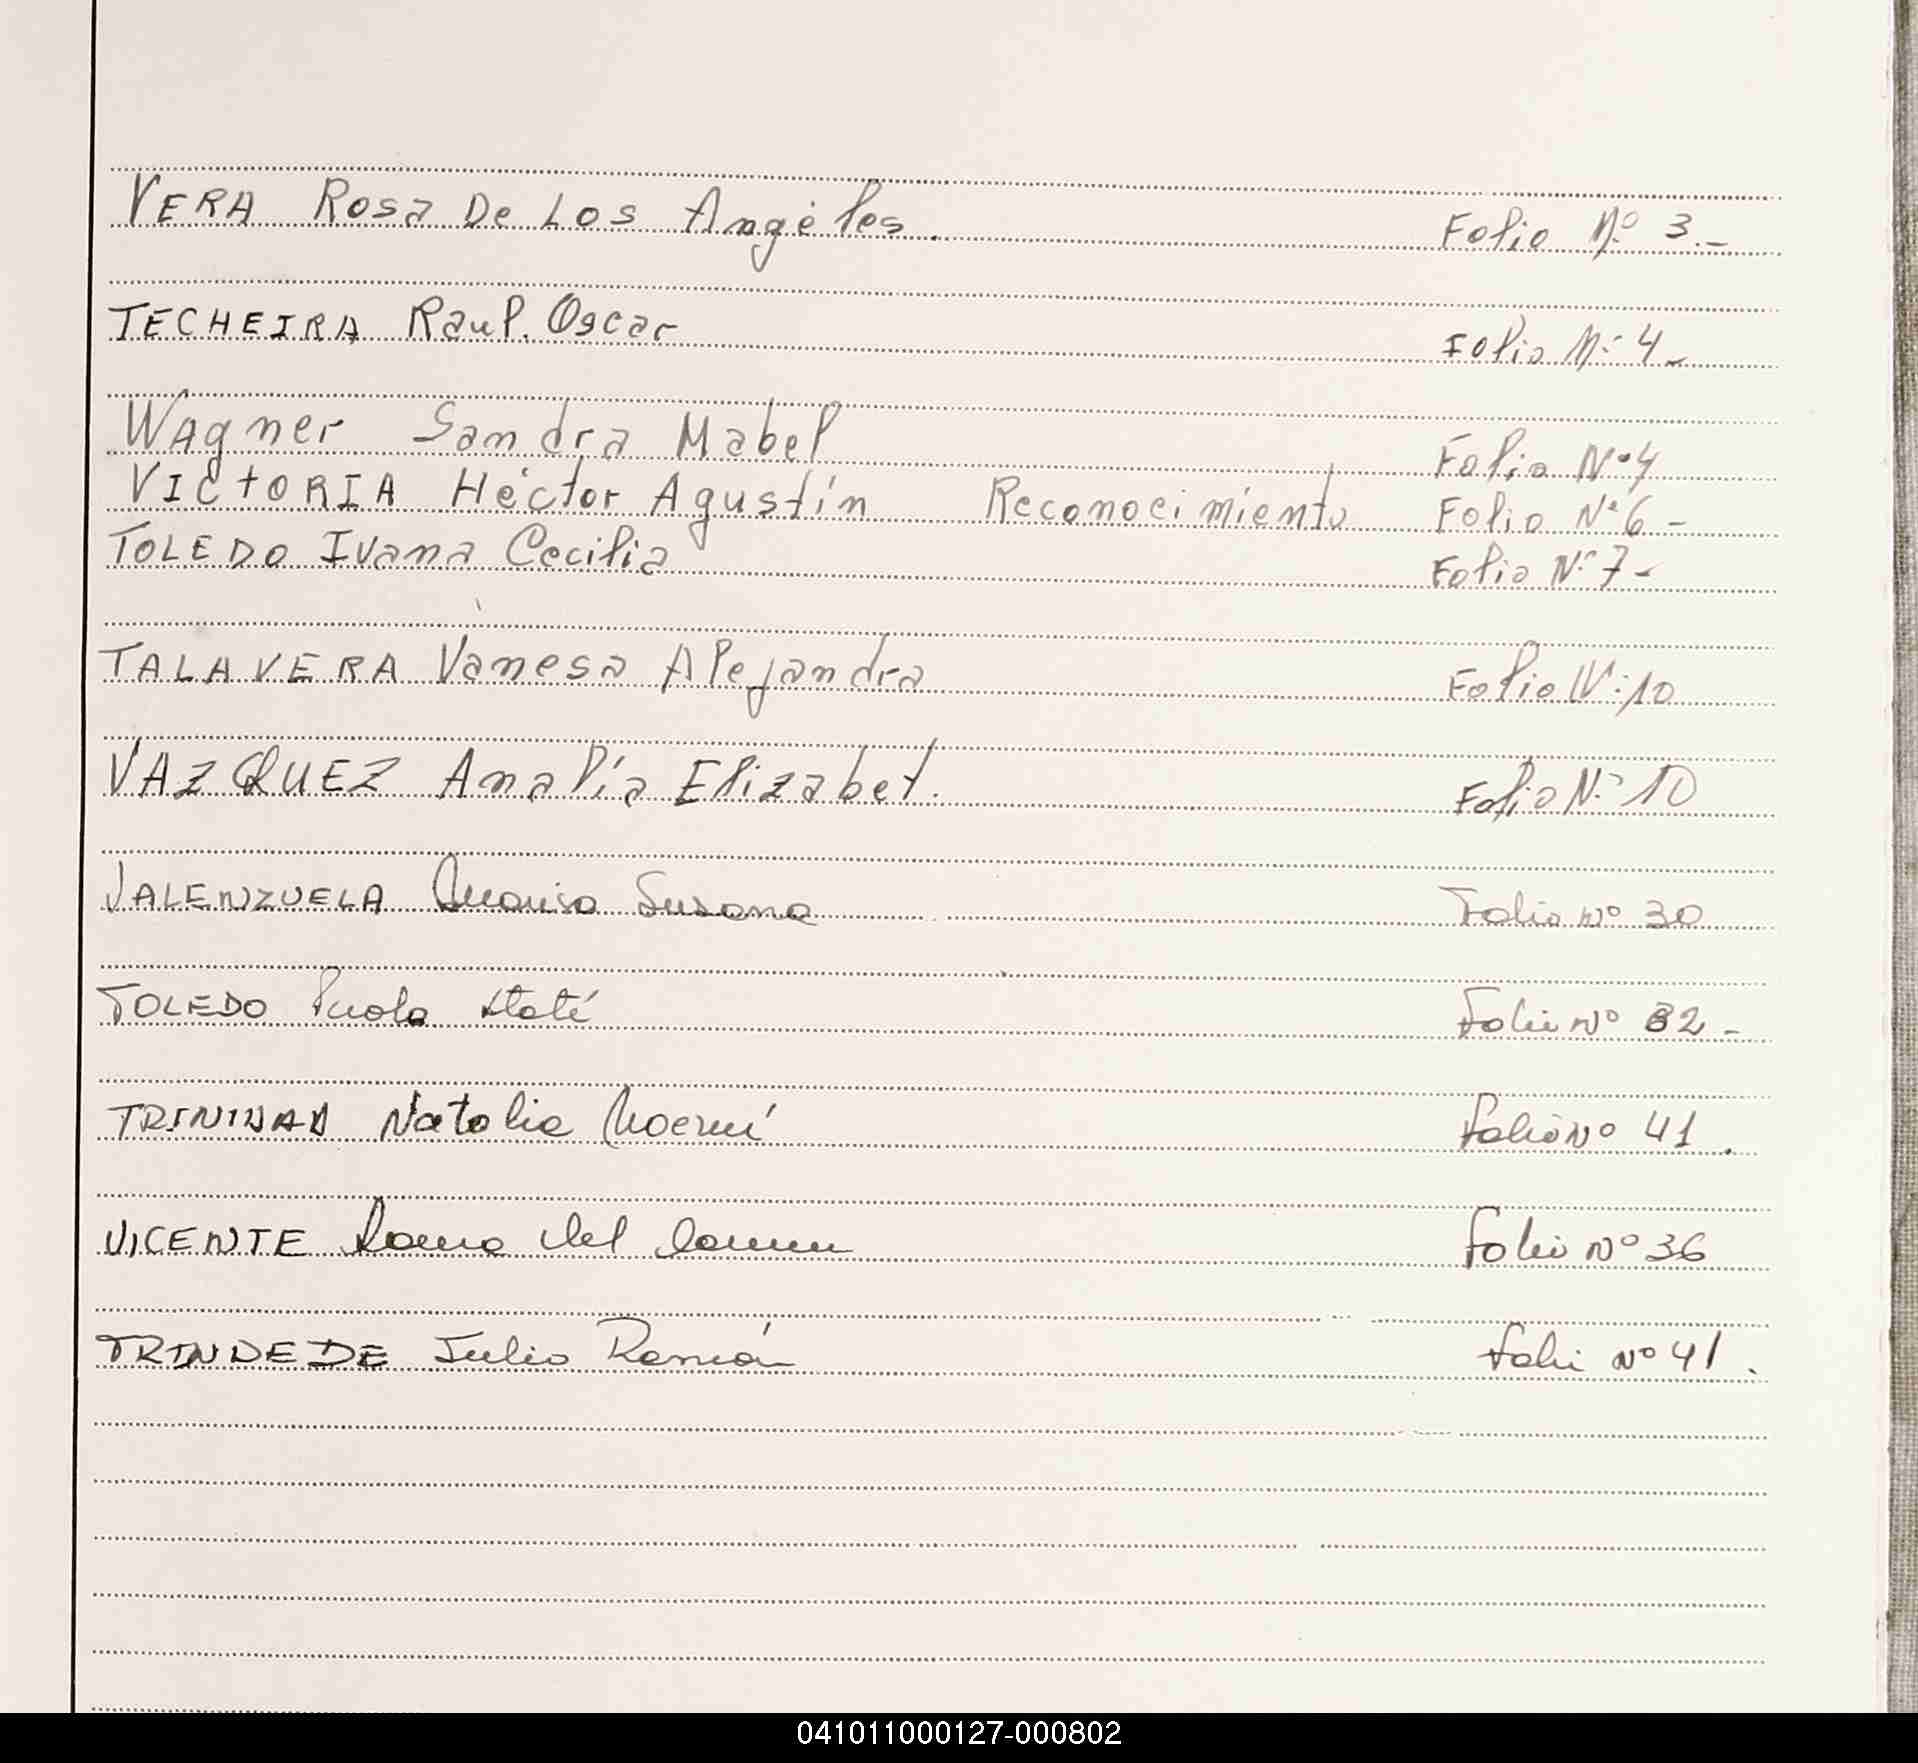 VERA Rosa De Los Angeles. Folio Nº 3.-
TECHEIRA Raul. Oscar Folio Nº 4-
Wagner Sandra Mabel Folio Nº 4
VICTORIA Héctor Agustín Reconocimiento Folio Nº 6-
TOLEDO Ivana Cecilia Folio Nº 7-
TALAVERA Vanesa Alejandra Folio Nº 10
VAZQUEZ Analía Elizabet. Folio Nº 10
VALENZUELA Susana Folio Nº 30
TOLEDO Itatí Folio Nº 32-
TRINIDAD Natalia Noemí Folio Nº 41.
VICENTE del Folio Nº 36
TRINDEDE Julio Ramón Folio Nº 41.
041011000127-000802